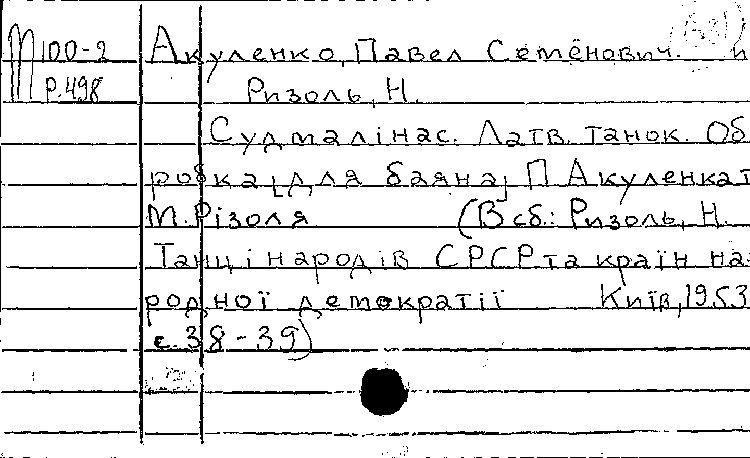 М100-2 Акуленко, Павел Семёнович. и
Р.498 Ризоль, Н.
Судмалінас. Латв. танок. Об
робка [для баяна] П Акуленка т
М. Різоля (В сб.: Ризоль, Н.
Танці народів СРСР та країн на-
родної демократії Київ, 1953
с. 38-39)